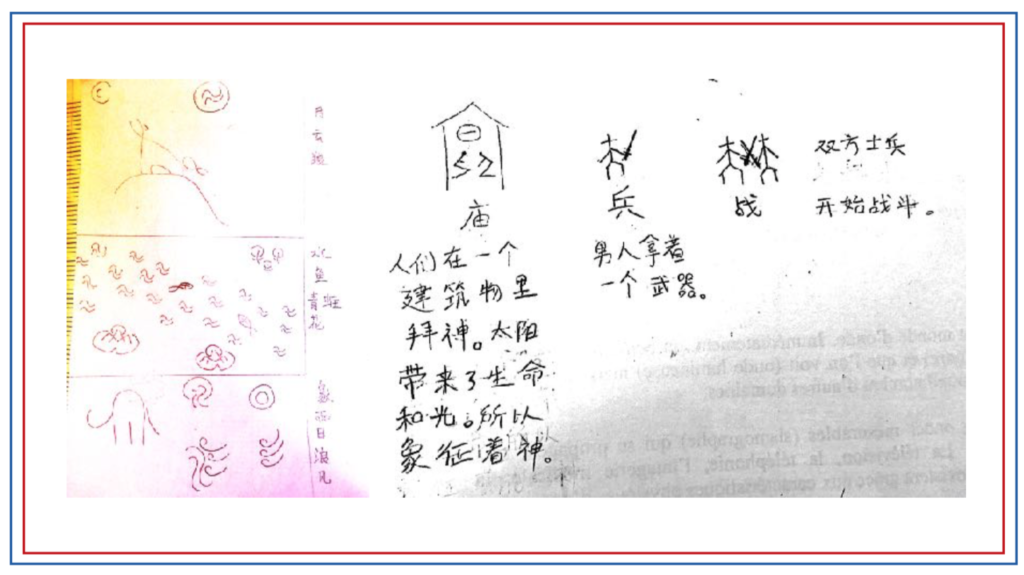 月
云
水
鱼
青蛙
花
象
日
浪
庙
人们在一个
建筑物里
拜神。太阳
带来了生命
和光。所以
象征着神。
兵
男人拿着
一个武器。
战
双方士兵
开始战斗。
monde d'onde.
que l'on voit (onde lumineuse)
d'autres domaines
mesurables (sismographe) qui se
La télévision, la téléphonie, l'imagerie
grâce aux caractéristiques